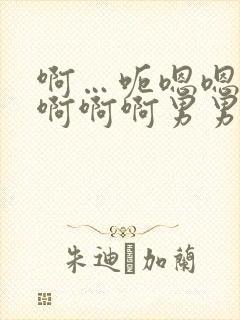 啊…呃嗯嗯
啊啊啊男男
朱迪·加蘭